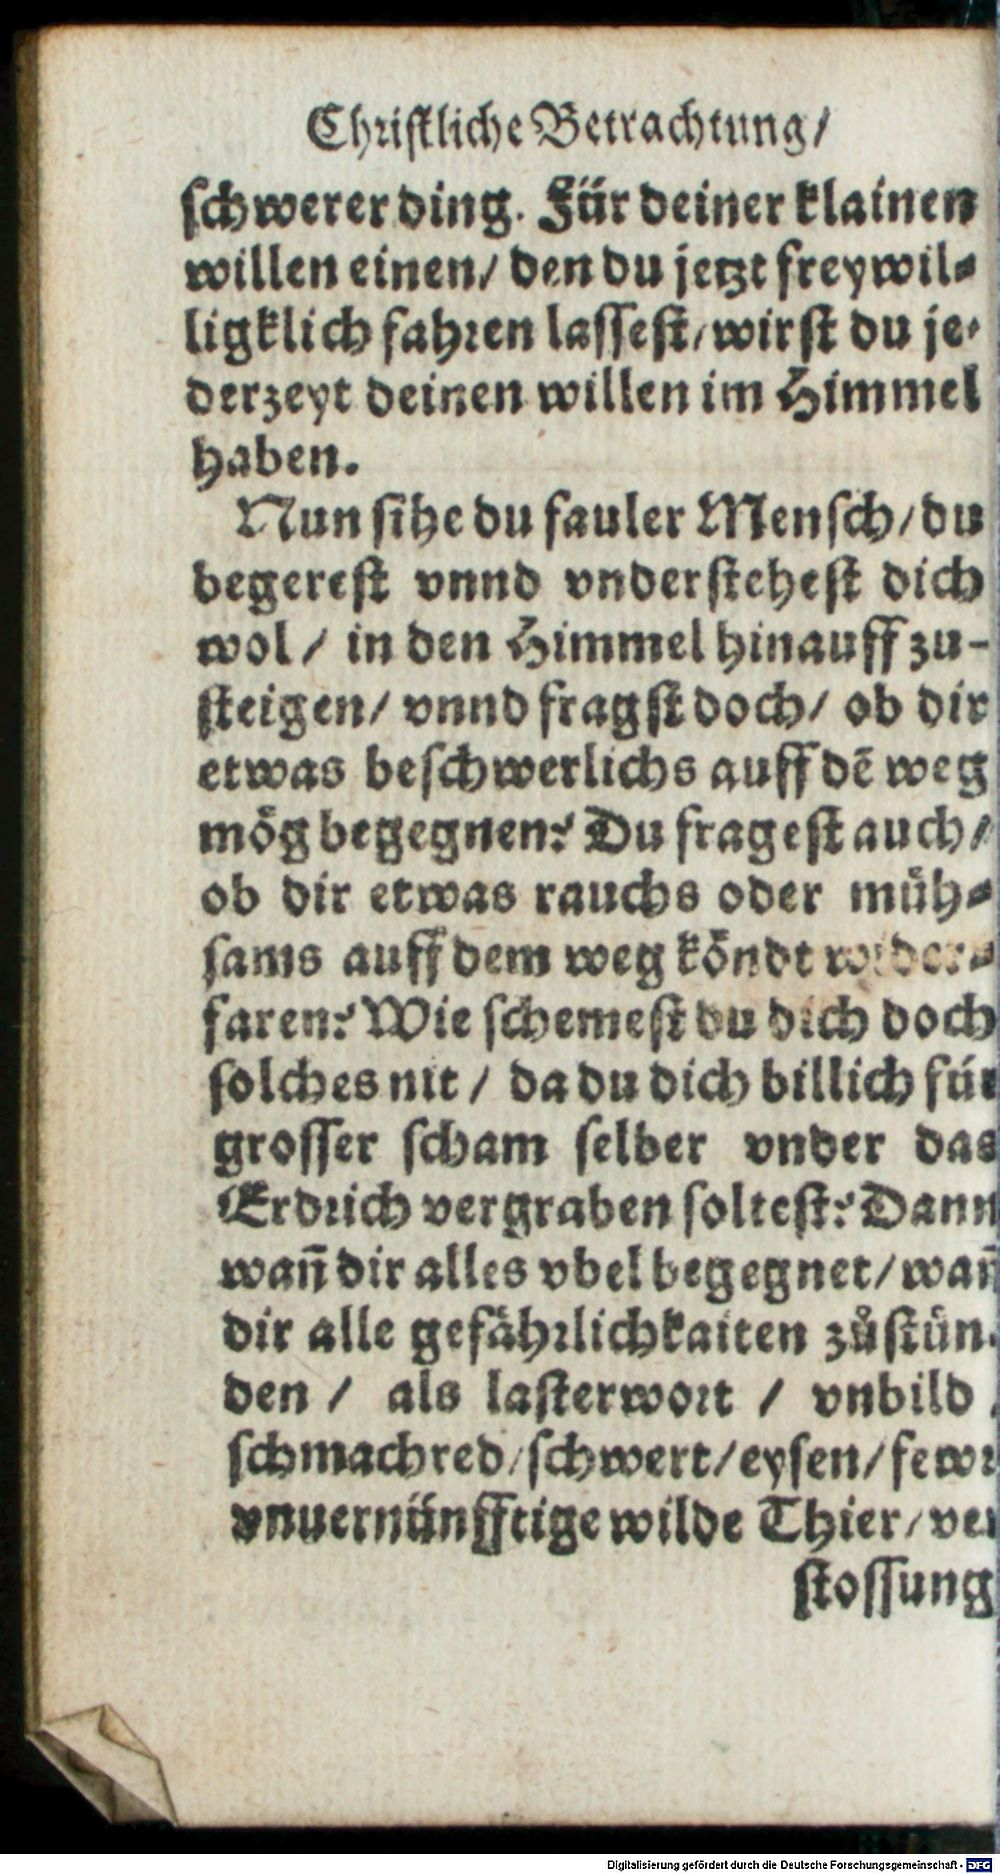 Christliche Betrachtung/
schwerer ding. Für deiner klainen
willen einen/ den du jetzt freywil⸗
ligklich fahren lassest/ wirst du je⸗
derzeyt deinen willen im Himmel
haben.
Nun sihe du fauler Mensch/ du
begerest vnnd vnderstehest dich
wol/ in den Himmel hinauff zu-
steigen/ vnnd fragst doch/ ob dir
etwas beschwerlichs auff dẽ weg
mög begegnen? Du fragest auch/
ob dir etwas rauchs oder müh⸗
sams auff dem weg köndt wider⸗
faren? Wie schemest du dich doch
solches nit / da du dich billich für
grosser scham selber vnder das
Erdrich vergraben soltest? Dann
wañ dir alles vbel begegnet/ wañ
dir alle gefährlichkaiten zůstün⸗
den / als lasterwort / vnbild /
schmachred/ schwert/ eysen/ fewr
vnuernünfftige wilde Thier/ ver
stossung
Digitalisierung gefördert durch die Deutsche Forschungsgemeinschaft - DFG